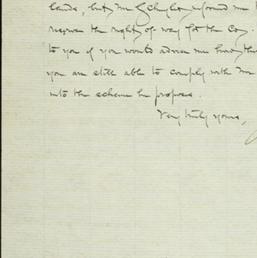 lands, but Mr Schuyler informed me
reserve the right of way for the Coy.
to you if you would advise me how the
you are still able to comply with Mr
into the scheme he proposes.
Very truly yours,